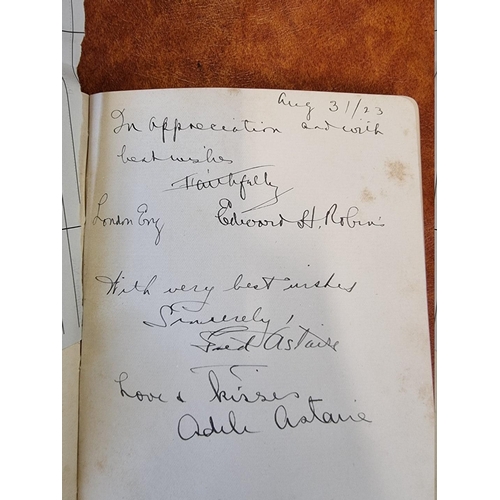 Aug 31/23
In appreciation and with
best wishes
Faithfully
London Eng Edward H. Robins
With very best wishes
Sincerely!
Fred Astaire
Love & kisses
Adele Astaire